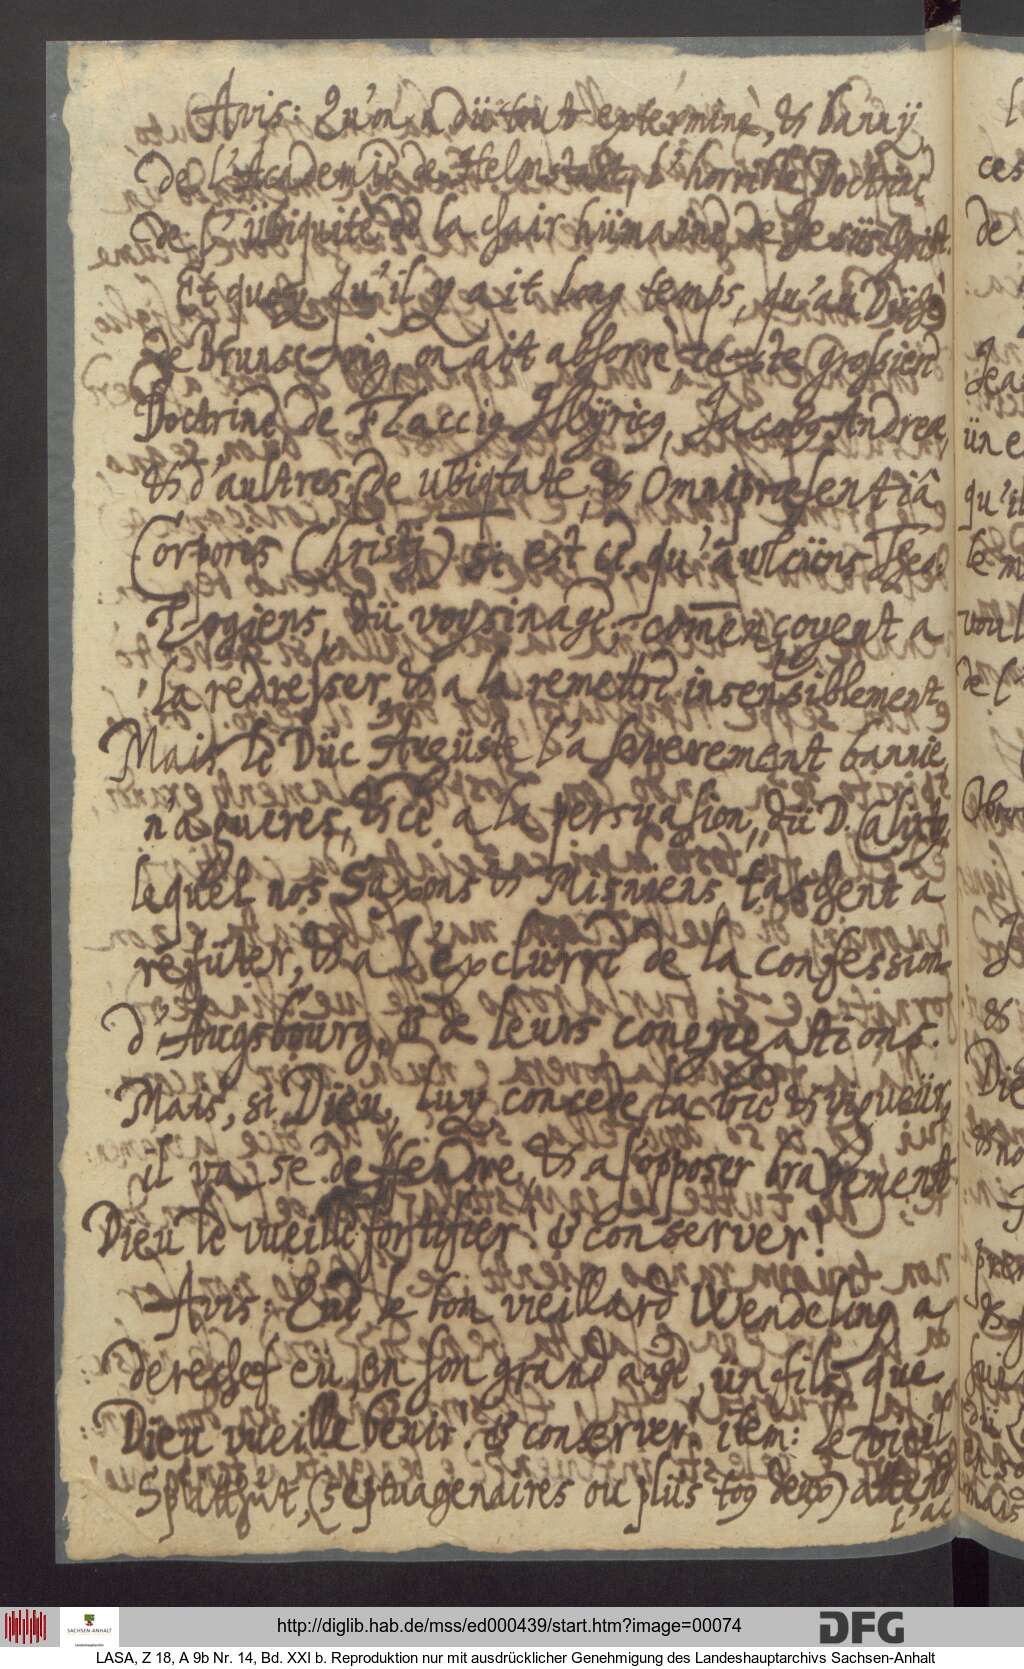 Avis: Qu'on a dü tout exterminè, & banny
de l'Academie de Helmstedt, l'horrible Doctrine
de l'übiquitè de la chair hümaine de Jesüs Christ.
Et quoy qu'il y ait long temps, qu'au Düchè
de Brunscwig, on ait abhorrè, ceste grossiere
Doctrine de Flaccig Illÿricg, Jacobg Andreæ,
& d'aultres, de ubiqtate, & Omnipræsentiâ
Corporis Christj) si est ce, qu'aulcüns Theo:
Logiens, dü voysinage, comēncoyent a
la redresser, & a la remettre insensiblement,
Mais le Düc Augüste l'a severement bannie,
n'agueres, & ce a la persuasion, dü D. Calixtg,
lequel nos Saxons & Misniens, taschent a
refüter, & a l'exclurre de la confession
d'Augsbourg, & de leurs congregations.
Mais, si Dieu, luy concede la vie & vigueür,
il va se deffendre, & a s'opposer bravement.
Dieu le vueille fortifier & conserver!
Avis; Que le bon vieillard Wendeling a
derechef eu, en son grand aage, ün fils, que
Dieu vueille benir & conserver. item: le vieil
(septuagenaires ou plüs tog deux) attend
l'ac
ces
de
qu'il
voul
de l
&
Die
http://diglib.hab.de/mss/ed000439/start.htm?image=00074
DFG
SACHSEN-ANHALT
LASA, Z 18, A 9b Nr. 14, Bd. XXI b. Reproduktion nur mit ausdrücklicher Genehmigung des Landeshauptarchivs Sachsen-Anhalt